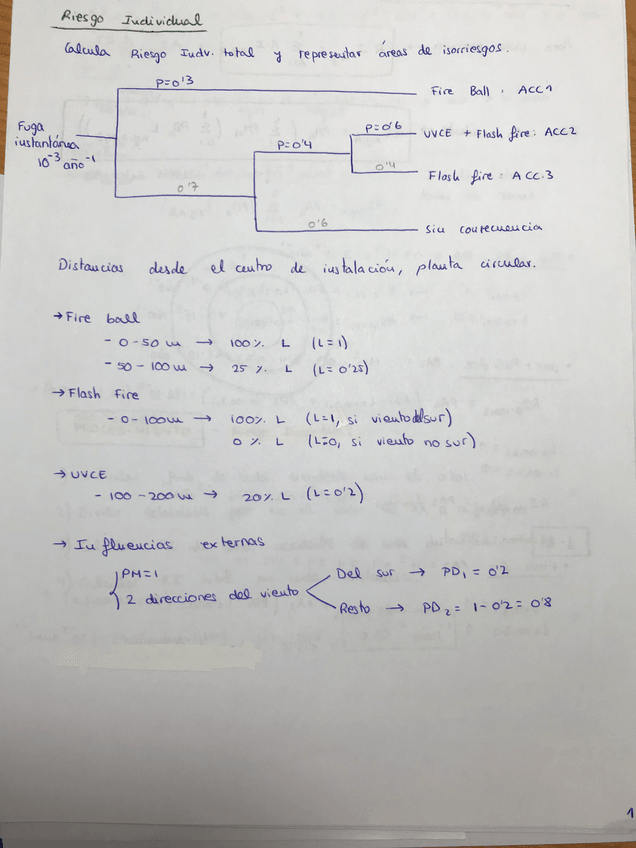 Riesgo Individual
Calcula Riesgo Indv. total y representar áreas de isorriesgos.
P=0'3
Fire Ball. ACC1
Fuga
instantánea
10⁻³ año⁻¹
P=0'6
UVCE + Flash fire: ACC2
P=0'4
0'4
Flash fire: ACC.3
0'7
0'6
Sin consecuencia
Distancias desde el centro de instalación, planta circular.
→ Fire ball
- 0-50 m → 100% L (L=1)
- 50-100 m → 25 % L (L=0'25)
→ Flash Fire
- 0-100 m → 100% L (L=1, si viento del sur)
0 % L (L=0, si viento no sur)
→ UVCE
- 100-200 m → 20% L (L=0'2)
→ Influencias externas
PM=1
2 direcciones del viento
Del sur → PD₁ = 0'2
Resto → PD₂ = 1-0'2 = 0'8
1